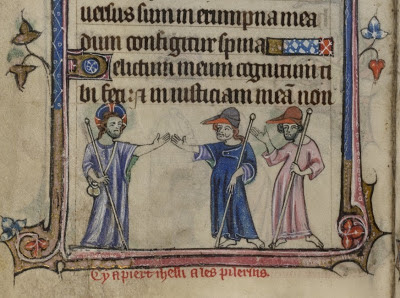 uersus sum in erumpna mea
dum configitur spina
Delictum meum cognitum ti
bi feci: ⁊ iniusticiam meā non
Cy apiert ihesu a les pilerins.